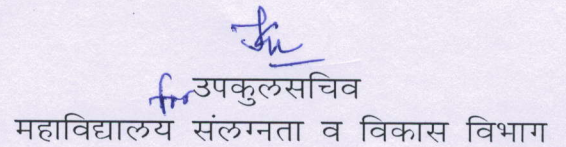 for उपकुलसचिव
महाविद्यालय संलग्नता व विकास विभाग